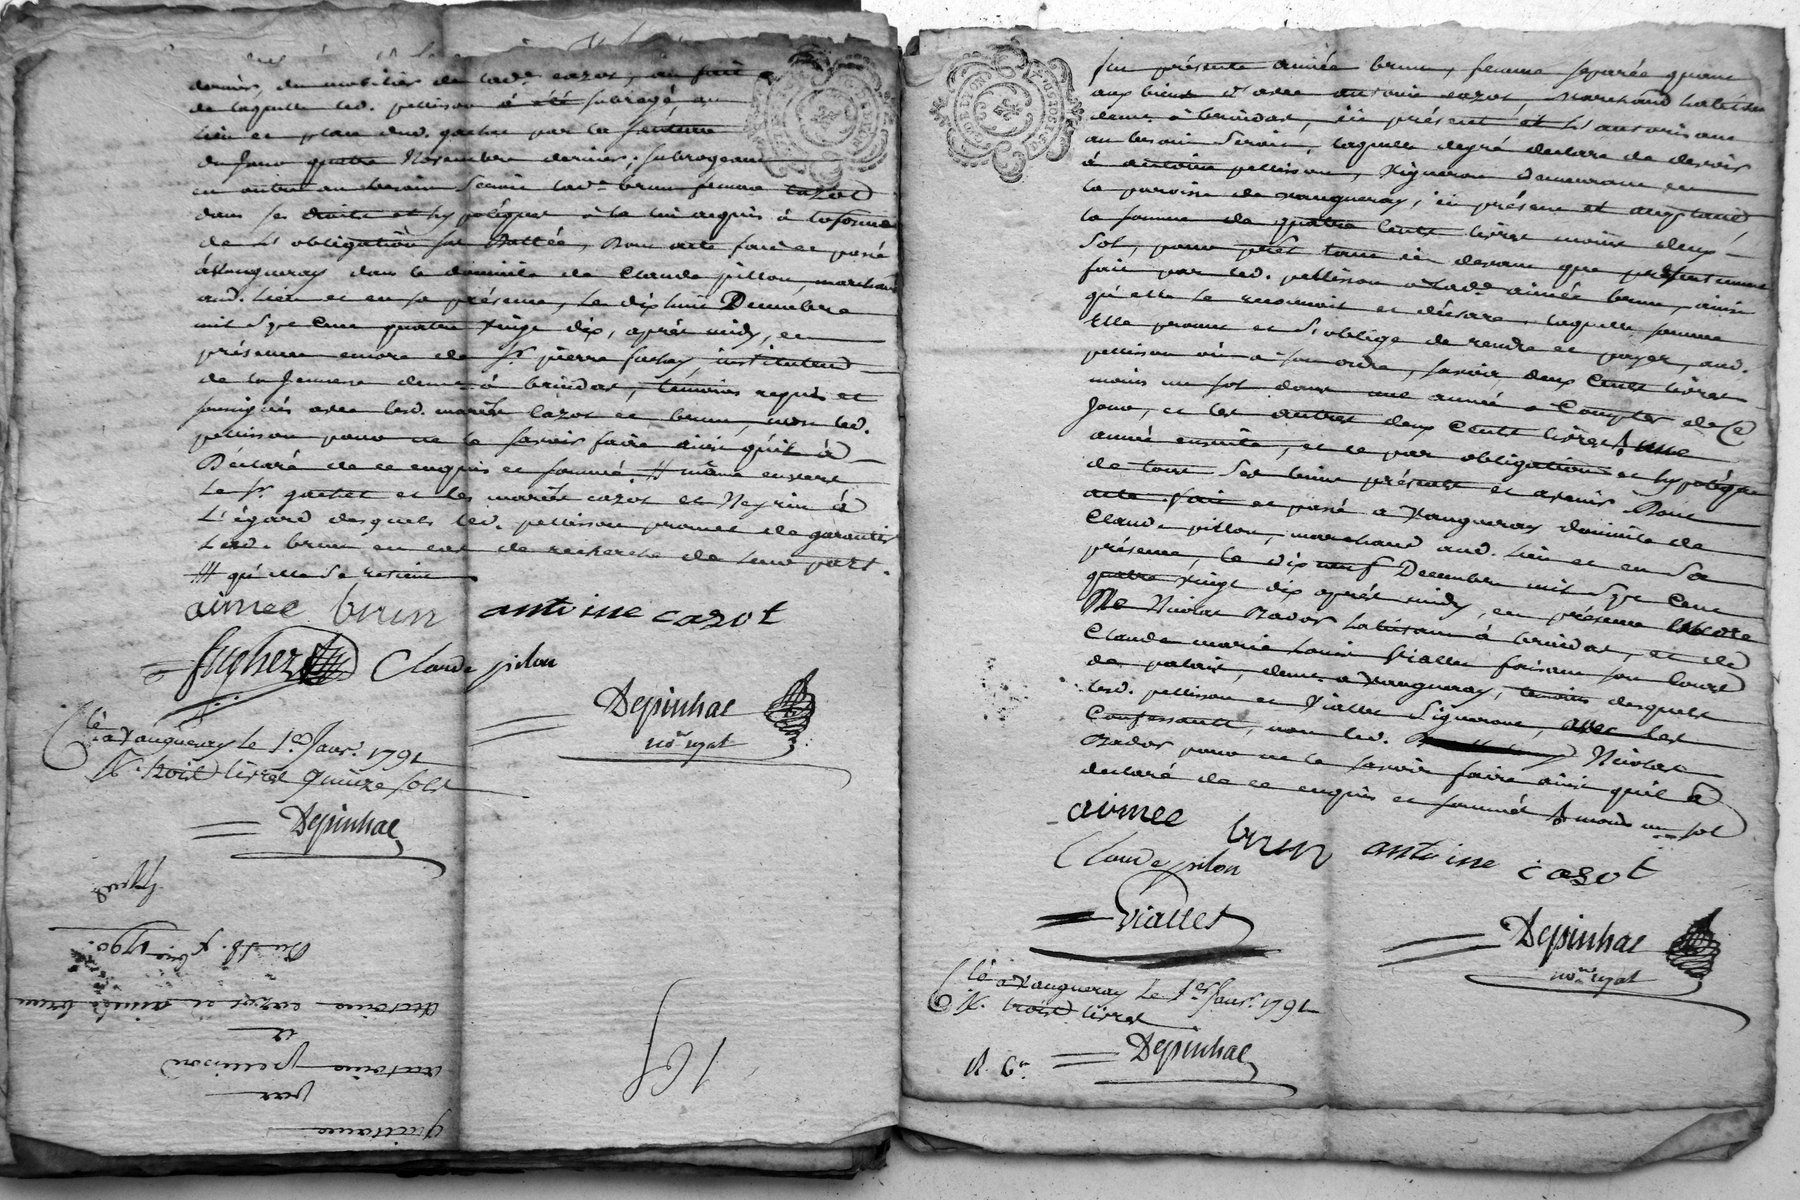 dernier, du mobilier de lad.e cazot, au fait
de laquelle led. pellisson à été subrogé, au
lieu et place dud. gachet par la sentence
du Jour quatre Novembre dernier; subrogeant
en outre au besoin Seroit lad.e brun femme cazot
dans ses droits et hypotéques à la lui acquis à la forme
de l'obligation sus Dattée, Dont acte fait et passé
à Vaugneray dans le domicile de Claude pillon, marchand
aud. lieu et en sa présence, le dix huit Decembre
mil Sept Cent quatre vingt dix, après midy, en
présence encore de S.r pierre fughez instituteur
de la Jeunesse dem.t à brindas, témoins requis et
soussignés avec lesd. mariés Cazot et brun, non led.
pellisson pour ne le savoir faire ainsi qu'il à
Déclaré de ce enquis et sommé # même envers
le S.r gachet et les mariés cazot et Neyrin à
L'égard desquels led. pellisson promet de garantir
lad. brun en cas de recherche de leur part.
## qu'elle se retient
aimee brun antoine cazot
fughez Claude pilon
Depinhac
no.re royal
C.lé à Vaugneray le 1.er Janv.r 1791
R. trois livres quinze sols
Depinhac
quittance
par
antoine pellisson
à
antoine cazot et aimée brun
Du 18. xbre 1790.
fut présente aimée brun, femme separée quant
aux biens d'avec antoine cazot Marchand habitan
dem.t à brindas, ici présent et L'autorisant
au besoin Seroit, laquelle degré declare de devoir
à antoine pellisson, Vigneron demeurant en
la paroisse de vaugneray, ici présent et acceptant
la somme de quatre Cents livres moins deux
Sol, pour prêt tant ci devant que présentement
fait par led. pellisson à lad.e aimée brun, ainsi
qu'elle le reconnoit et déclare, laquelle somme
Elle promet et S'oblige de rendre et payer, aud.
pellisson où à son ordre, savoir deux Cents livres
moins un sol dans une année à Compter de Ce
Jour, et les autres deux Cents livres # une
année ensuite, et ce par obligation et hypotéque
de tous Ses biens présents et avenir Dont
acte fait et passé à Vaugneray domicile de
Claude pillon, marchand aud. lieu et en Sa
présence, le dix neuf Decembre mil Sept Cent
quatre vingt dix après midy, en présence encore
De Nicolas Bador habitant à brindas, et de
Claude marie Louis Viallet faisant son Cours
de palais, dem.t à Vaugneray, témoins desquels
led. pellisson et Viallet Signeront, avec les
Confessants, non led. Nicolas
Bador pour ne le savoir faire ainsi qu'il à
declaré de ce enquis et sommé # moins un sol
aimee brun antoine cazot
Claude pilon
Viallet
Depinhac
no.re royal
C.lé à Vaugneray le 1.er Janv.r 1791
R. trois livres
Depinhac